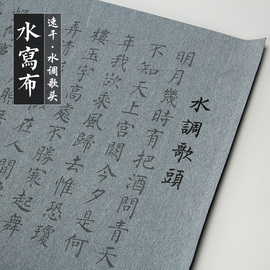 水寫布
速干·水调歌头
水調歌頭
明月幾時有把酒問青天
不知天上宮闕今夕是何
年我欲乘風歸去惟恐瓊
樓玉宇高處不勝寒起舞
弄清
在人間